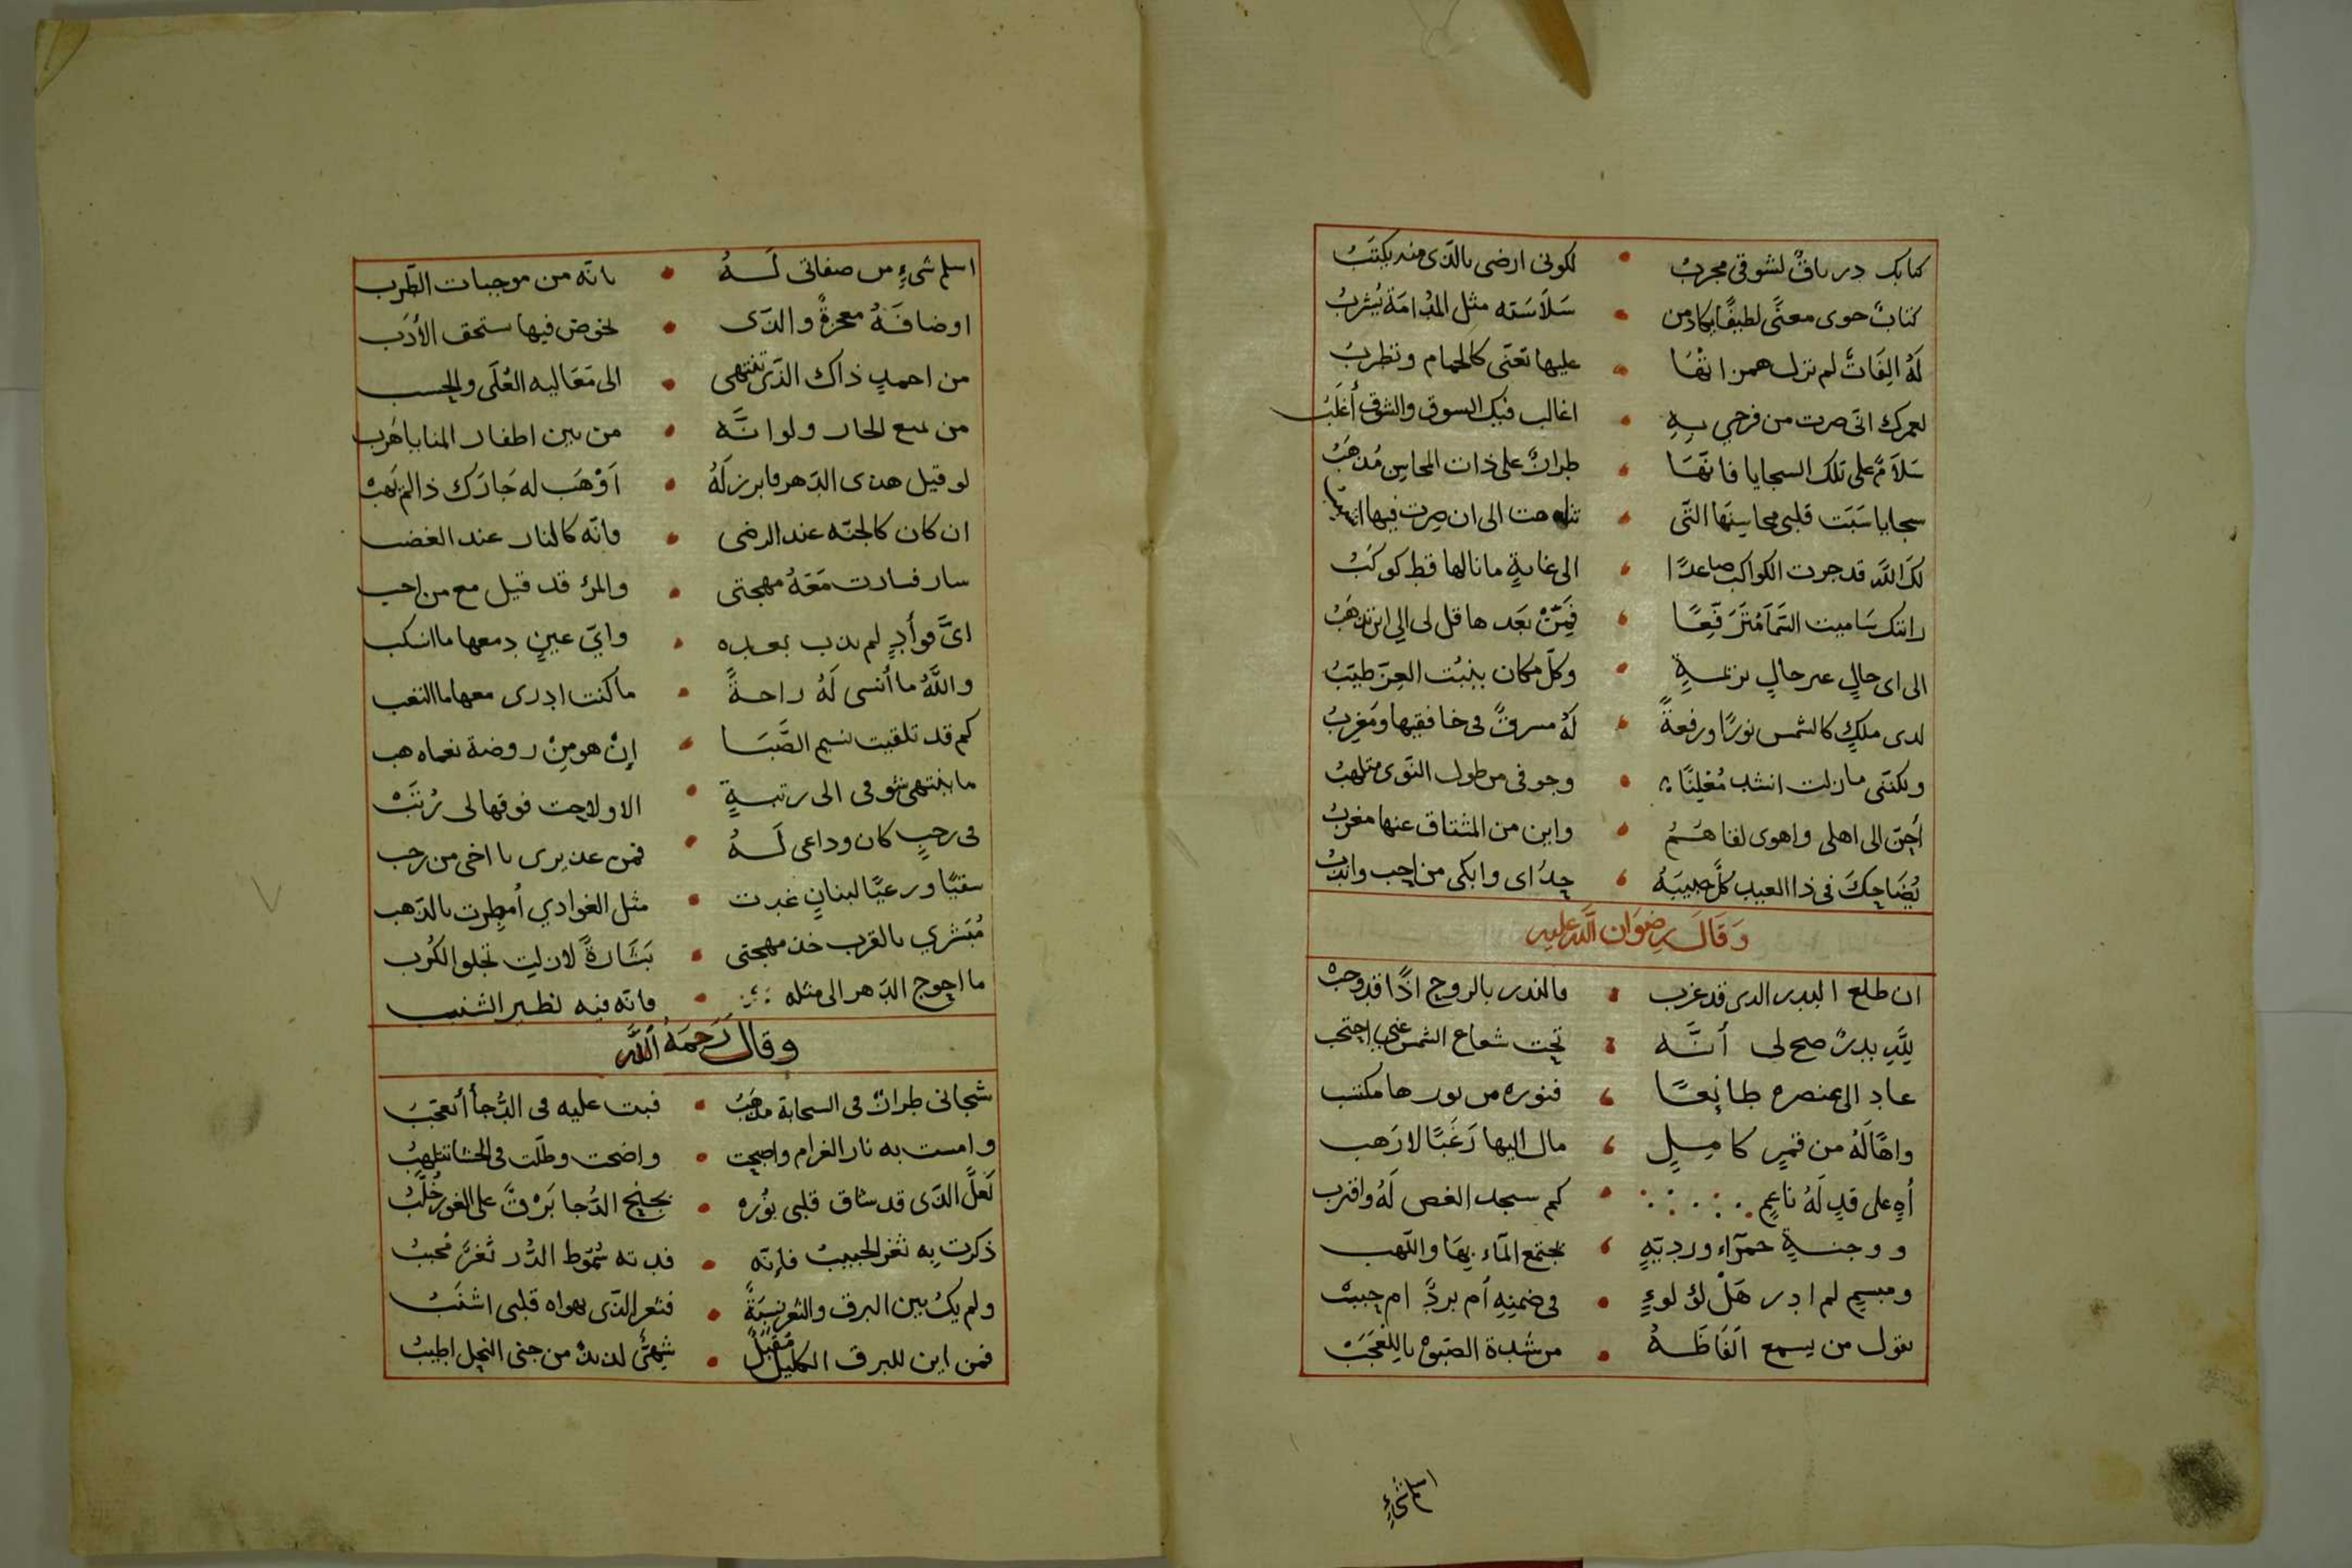 كتابك درياقٌ لشوقي مجربُ • لكونى ارضى بالذى منه يكتبُ
كتابٌ حوى معنًى لطيفًا يكاد من • سَلاَسَته مثل المدُامَة يُشربُ
لَهُ الِفَاتٌ لم تزل همزاتها • عليها تغنّى كالحمام وتطربُ
لعمرك انّى صرت من فرحي بِهِ • اغالب فيك الشوق والشوق أغلَبُ
سَلاَمٌ على تلك السجايا فانّهَا • طرازٌ على ذات المحاسِن مُذهَبُ
سجايا سَبَت قلبى محاسِنهَا التى • الى ان صِرت فيها
لكَ اللّه قد جرت الكواكب صاعدًا • الى غايةٍ ما نالها قط كوكبُ
رايتك سَاميت السّمَا مُترَفّعًا • فَمِنْ بَعد ها قل لى الي اين تذهَبُ
الى اى حالٍ عير حالٍ • وكلّ مكان ينبُت العِزّ طيّبُ
لدى ملكٍ كالشمس نورًا ورفعةً • لَهُ مسرقٌ فى خافقيها ومَغرِبُ
ولكنّنى مازلت انشد مُعْلِنًا • وجوفى من طول النّوى متلهبُ
أحِنّ الى اهلى واهوى لقاهُـمُ • واين من المشتاق عنها مغربُ
يُضَاحِكَ فى ذا العيد كلٌّ حبيبَهُ • حِذَاى وابكى من احِب واندبُ
وَقَالَ رِضوَان اللّه عليه
ان طلع البدر الدى قد غرب • فالندر بالروح اذًا قد وجبْ
لِلّهِ بدرٌ صح لى أنّـه • تحت شعاع الشمس عنى احتجب
عاد الى عنصره طائِعًـا • فنوره من نورها مكتسب
واهًا لَهُ من قمرٍ كامِـلٍ • مال اليها رَغَبًا لا رَهب
أهِ على قدٍ لَهُ ناعِمٍ • كم سجد الغصن لَهُ واقترب
ووجنـةٍ حمرَآء ورديّةٍ • تجتمع المآء بهَا واللّهب
ومبسِمٍ لم ادر هَلْ لؤلوءٍ • فى ضمنِهِ أم بردٌ ام حببْ
يقول من يسمع الفَاظَـهُ • من شدة الصّبوْة يا للعَجَبْ
اسلم شىءٍ
اسلم شىءٍ من صفاتى لَـهُ • بانّه من موجبات الطّرب
اوضافَهُ معجزةٌ والذى • يخوض فيها ستحق الأدَب
من احمدٍ ذاك الذّى تنتهى • الى مَعَاليه العُلَى والحسب
من يمنع الجار ولو انَّـه • من بين اظفار المنايا هَرب
لو قيل هذى الدّهر فابرز لَهُ • اَوْهَب له جَارَك ذا لم يَهبْ
ان كان كالجنّه عند الرضى • فانّه كالنار عند الغضب
سار فسارت مَعَهُ مهجتى • والمرُ قد قيل مع من احب
اىّ فوأدٍ لم يذب بعـده • وايّ عينٍ دمعها ما انسكب
واللَّهُ ما أُنسى لَهُ راحـةً • ما كنت ادرى معها ما التعب
كم قد تلقيت نسيم الصَّبَـا • إنْ هو مِنْ روضة نعماه هب
ما ينتهى شوقى الى رتبـةٍ • الا ولاحِت فوقها لى رُتَبْ
فى رجبٍ كان وداعى لَـهُ • فمن عديرى يا اخى من رجب
سقيًا ورعيًا لبنانٍ غدت • مثل الغوادي أُمطِرت بالذهب
مُبَشري بالقرب خذ مهجتى • بَشَارةً لازلت تجلو الكُرب
ما احوج الدّهر الى مثله • فانّه فيه نظير الشنب
وقال رَحمَهُ اللّه
شجانى طرازٌ فى السحابة مذهَبُ • فبت عليه فى الدُّجا أتعجّبُ
وامست به نار الغرام واصبحت • واضحت وظلّت فى الحشا تتلهبُ
لَعلّ الذى قد شاق قلبى نُوره • بجنح الدُّجا بَرْقٌ على الغور خُلّبُ
ذكرت بِه ثغر الحبيبُ فإنّه • فدته سُمّوط الدُّر ثَغرٌ مُحببُ
ولم يكُ بين البرق والثغر نسِبَةً • فثغر الذى يهواه قلبى اشنَبُ
فمن اين للبرق الكليل مُقَبّلُ • شِهىٌّ لذيذٌ من جنى النحل اطيبُ